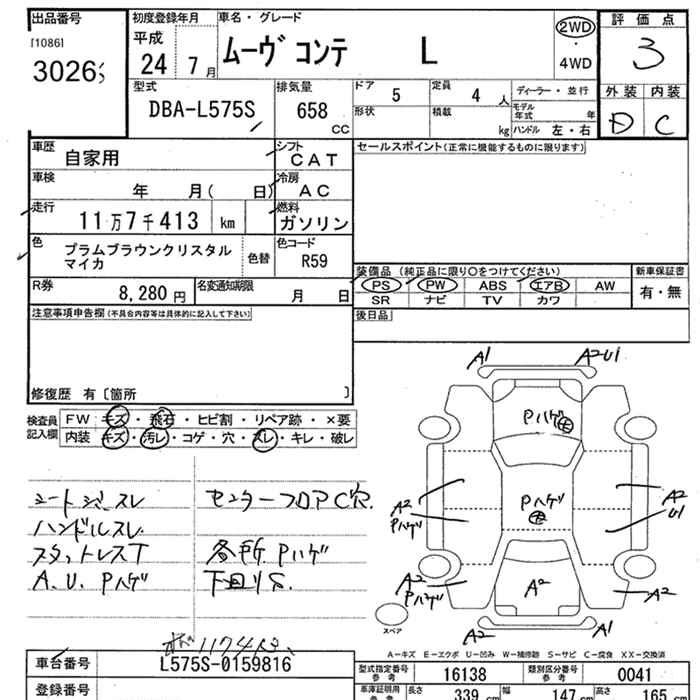 出品番号 初度登録年月 車名・グレード 2WD ・ 4WD 評価点
[1086] 3026 平成 24年 7月 ムーヴ コンテ L 3
型式 排気量 ドア 5 定員 4人 ディーラー・並行 外装 内装
DBA-L575S 658 CC 形状 積載 kg モデル年式 年 ハンドル 左・右 D C
車歴 自家用 シフト CAT セールスポイント(正常に機能するものに限ります)
車検 年 月( 日) 冷房 AC
走行 11万7千413 km 燃料 ガソリン
色 プラムブラウンクリスタル
マイカ 色替 色コード R59
装備品 (純正品に限り○をつけてください) 新車保証書
R券 8,280円 名変通知期限 月 日 PS PW ABS エアB AW 有・無
SR ナビ TV カワ
注意事項申告欄(不具合内容等は具体的に記入して下さい) 後日品
修復歴 有〔箇所 〕
検査員 FW キズ・飛石・ヒビ割・リペア跡・×要
記入欄 内装 キズ・汚レ・コゲ・穴・スレ・キレ・破レ
A1 A2U1
Pハゲ
Pハゲ
A2
Pハゲ
A2
U1
A2
Pハゲ
A2
A2
A2 A1
スペア
シートジミスレ センターフロアC穴.
ハンドルスレ
スタットレスT 各所Pハゲ
A.U.Pハゲ 下回りS.
A-キズ E-エクボ U-凹み W-補修跡 S-サビ C-腐食 XX-交換済
車台番号 L575S-0159816
型式指定番号 参考 16138 類別区分番号 参考 0041
登録番号
車庫証明用 参考 長さ 339 cm 幅 147 cm 高さ 165 cm